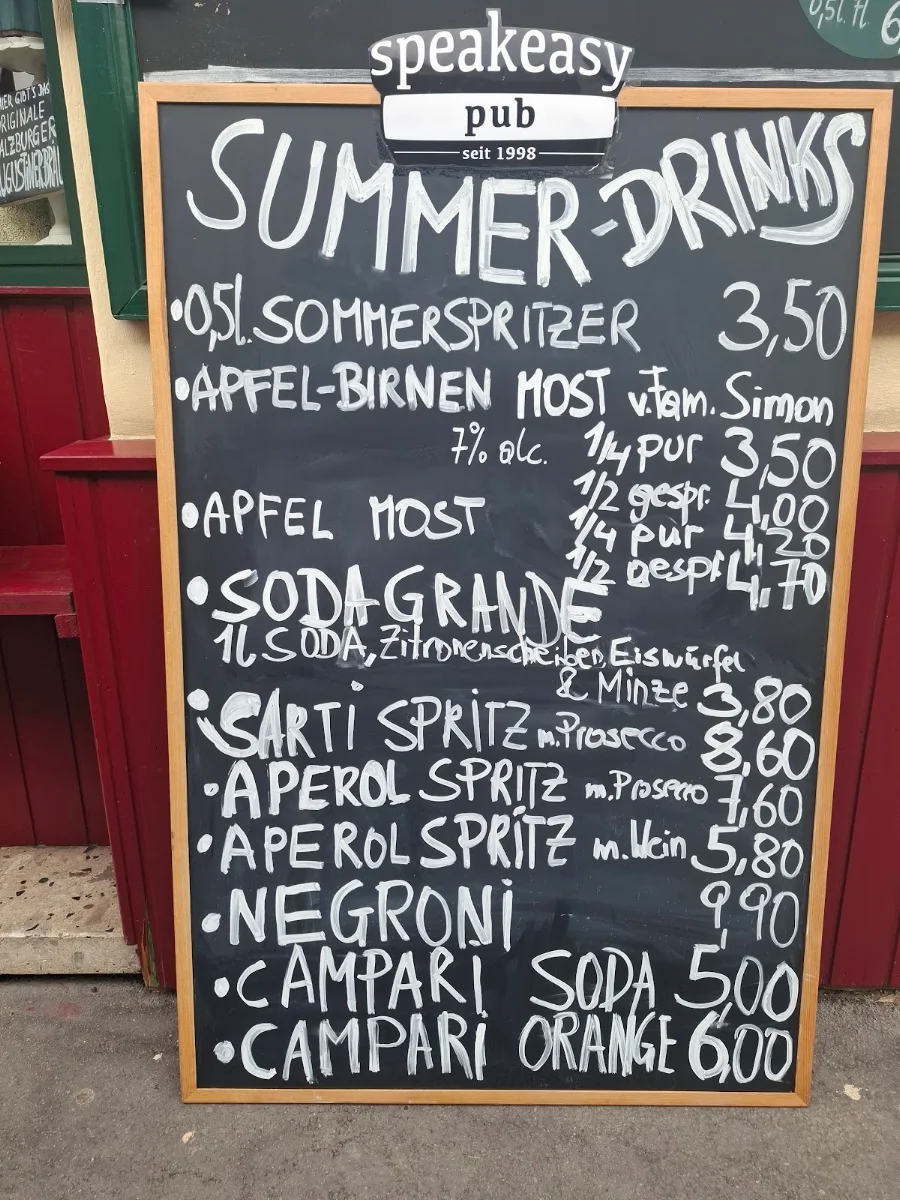 0,5l. fl. 6,
HIER GIBT'S DAS
ORIGINALE
SALZBURGER
AUGUSTINERBRÄU
speakeasy
pub
seit 1998
SUMMER-DRINKS
•0,5l. SOMMERSPRITZER 3,50
•APFEL-BIRNEN MOST v. Fam. Simon
7% alc. 1/4 pur 3,50
1/2 gespr. 4,00
•APFEL MOST 1/4 pur 4,20
1/2 gespr. 4,70
•SODA GRANDE
1L SODA, Zitronenscheiben, Eiswürfel
& Minze 3,80
•SARTI SPRITZ m. Prosecco 8,60
•APEROL SPRITZ m. Prosecco 7,60
•APEROL SPRITZ m. Wein 5,80
•NEGRONI 9,90
•CAMPARI SODA 5,00
•CAMPARI ORANGE 6,00